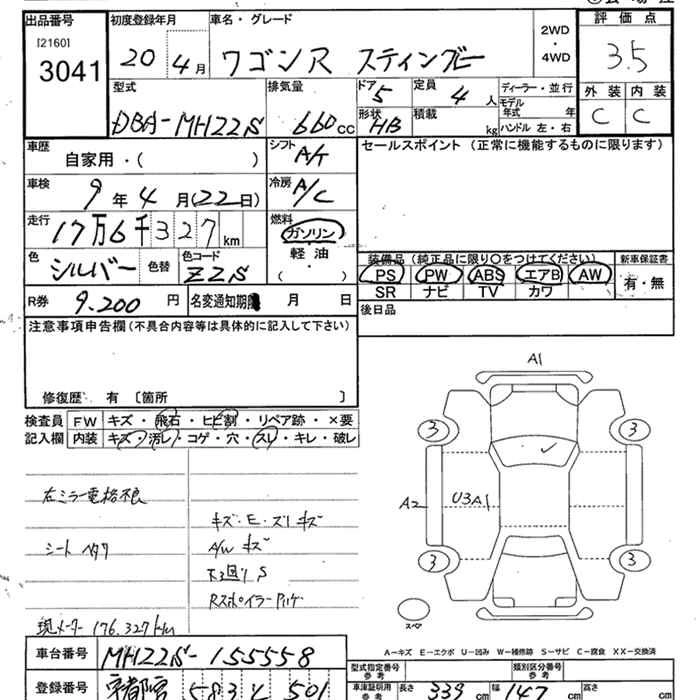 出品番号 初度登録年月 車名・グレード 2WD・4WD 評価点
[2160]
3041 20 4月 ワゴンR スティングレー 3.5
型式 排気量 ドア 5 定員 4 人 ディーラー・並行 外装 内装
DBA-MH22S 660cc 形状 HB 積載 kg モデル年式 年 C C
ハンドル 左・右
車歴 自家用・( ) シフト A/T セールスポイント (正常に機能するものに限ります)
車検 9年4月(22日) 冷房 A/C
走行 17万6千327km 燃料 ガソリン
軽油
( )
色 シルバー 色替 色コード ZZS
装備品 (純正品に限り○をつけてください) 新車保証書
PS PW ABS エアB AW 有・無
SR ナビ TV カワ
R券 9.200円 名変通知期限 月 日 後日品
注意事項申告欄(不具合内容等は具体的に記入して下さい)
修復歴 有 〔箇所 〕
検査員 FW キズ・飛石・ヒビ割・リペア跡・×要
記入欄 内装 キズ・汚レ・コゲ・穴・スレ・キレ・破レ
左ミラー電格不良
シート ヘタリ
キズ・E・ズリキズ
A/W キズ
下廻り S
Rスポイラー
現メーター 176.327km
A1
3 3
A2 U3A1
3 3
スペア
A-キズ E-エクボ U-凹み W-補修跡 S-サビ C-腐食 XX-交換済
車台番号 MH22S-155558
登録番号 宇都宮 583 501
型式指定番号 参考 類別区分番号 参考
車庫証明用 参考 長さ 339cm 幅 147cm 高さ cm